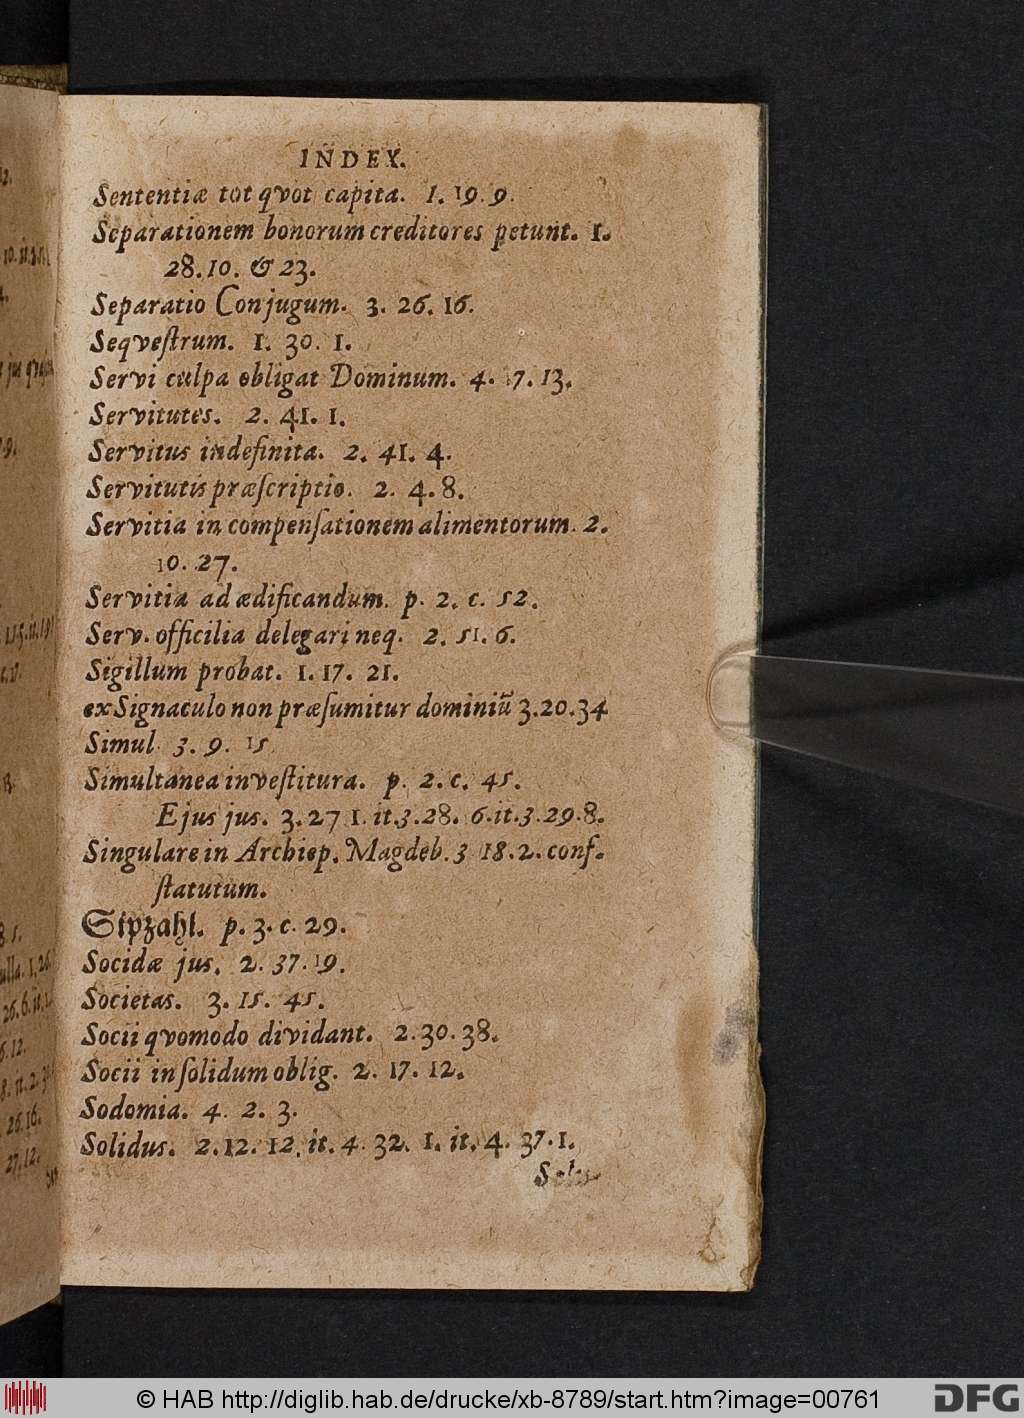 INDEX.
Sententiæ tot qvot capita. 1. 19. 9.
Separationem bonorum creditores petunt. 1.
28. 10. & 23.
Separatio Conjugum. 3. 26. 16.
Seqveſtrum. 1. 30. 1.
Servi culpa obligat Dominum. 4. 17. 13.
Servitutes. 2. 41. 1.
Servitus indefinita. 2. 41. 4.
Servitutis præſcriptio. 2. 4. 8.
Servitia in compenſationem alimentorum. 2.
10. 27.
Servitia ad ædificandum. p. 2. c. 52.
Serv. officilia delegari neq. 2. 51. 6.
Sigillum probat. 1. 17. 21.
ex Signaculo non præſumitur dominiū 3. 20. 34
Simul 3. 9. 15.
Simultanea inveſtitura. p. 2. c. 45.
Ejus jus. 3. 27 1. it. 3. 28. 6. it. 3. 29. 8.
Singulare in Archiep. Magdeb. 3 18. 2. conſ.
ſtatutum.
Sipzahl. p. 3. c. 29.
Socidæ jus. 2. 37. 19.
Societas. 3. 15. 45.
Socii qvomodo dividant. 2. 30. 38.
Socii in ſolidum oblig. 2. 17. 12.
Sodomia. 4. 2. 3.
Solidus. 2. 12. 12. it. 4. 32. 1. it. 4. 37. 1.
© HAB http://diglib.hab.de/drucke/xb-8789/start.htm?image=00761
DFG